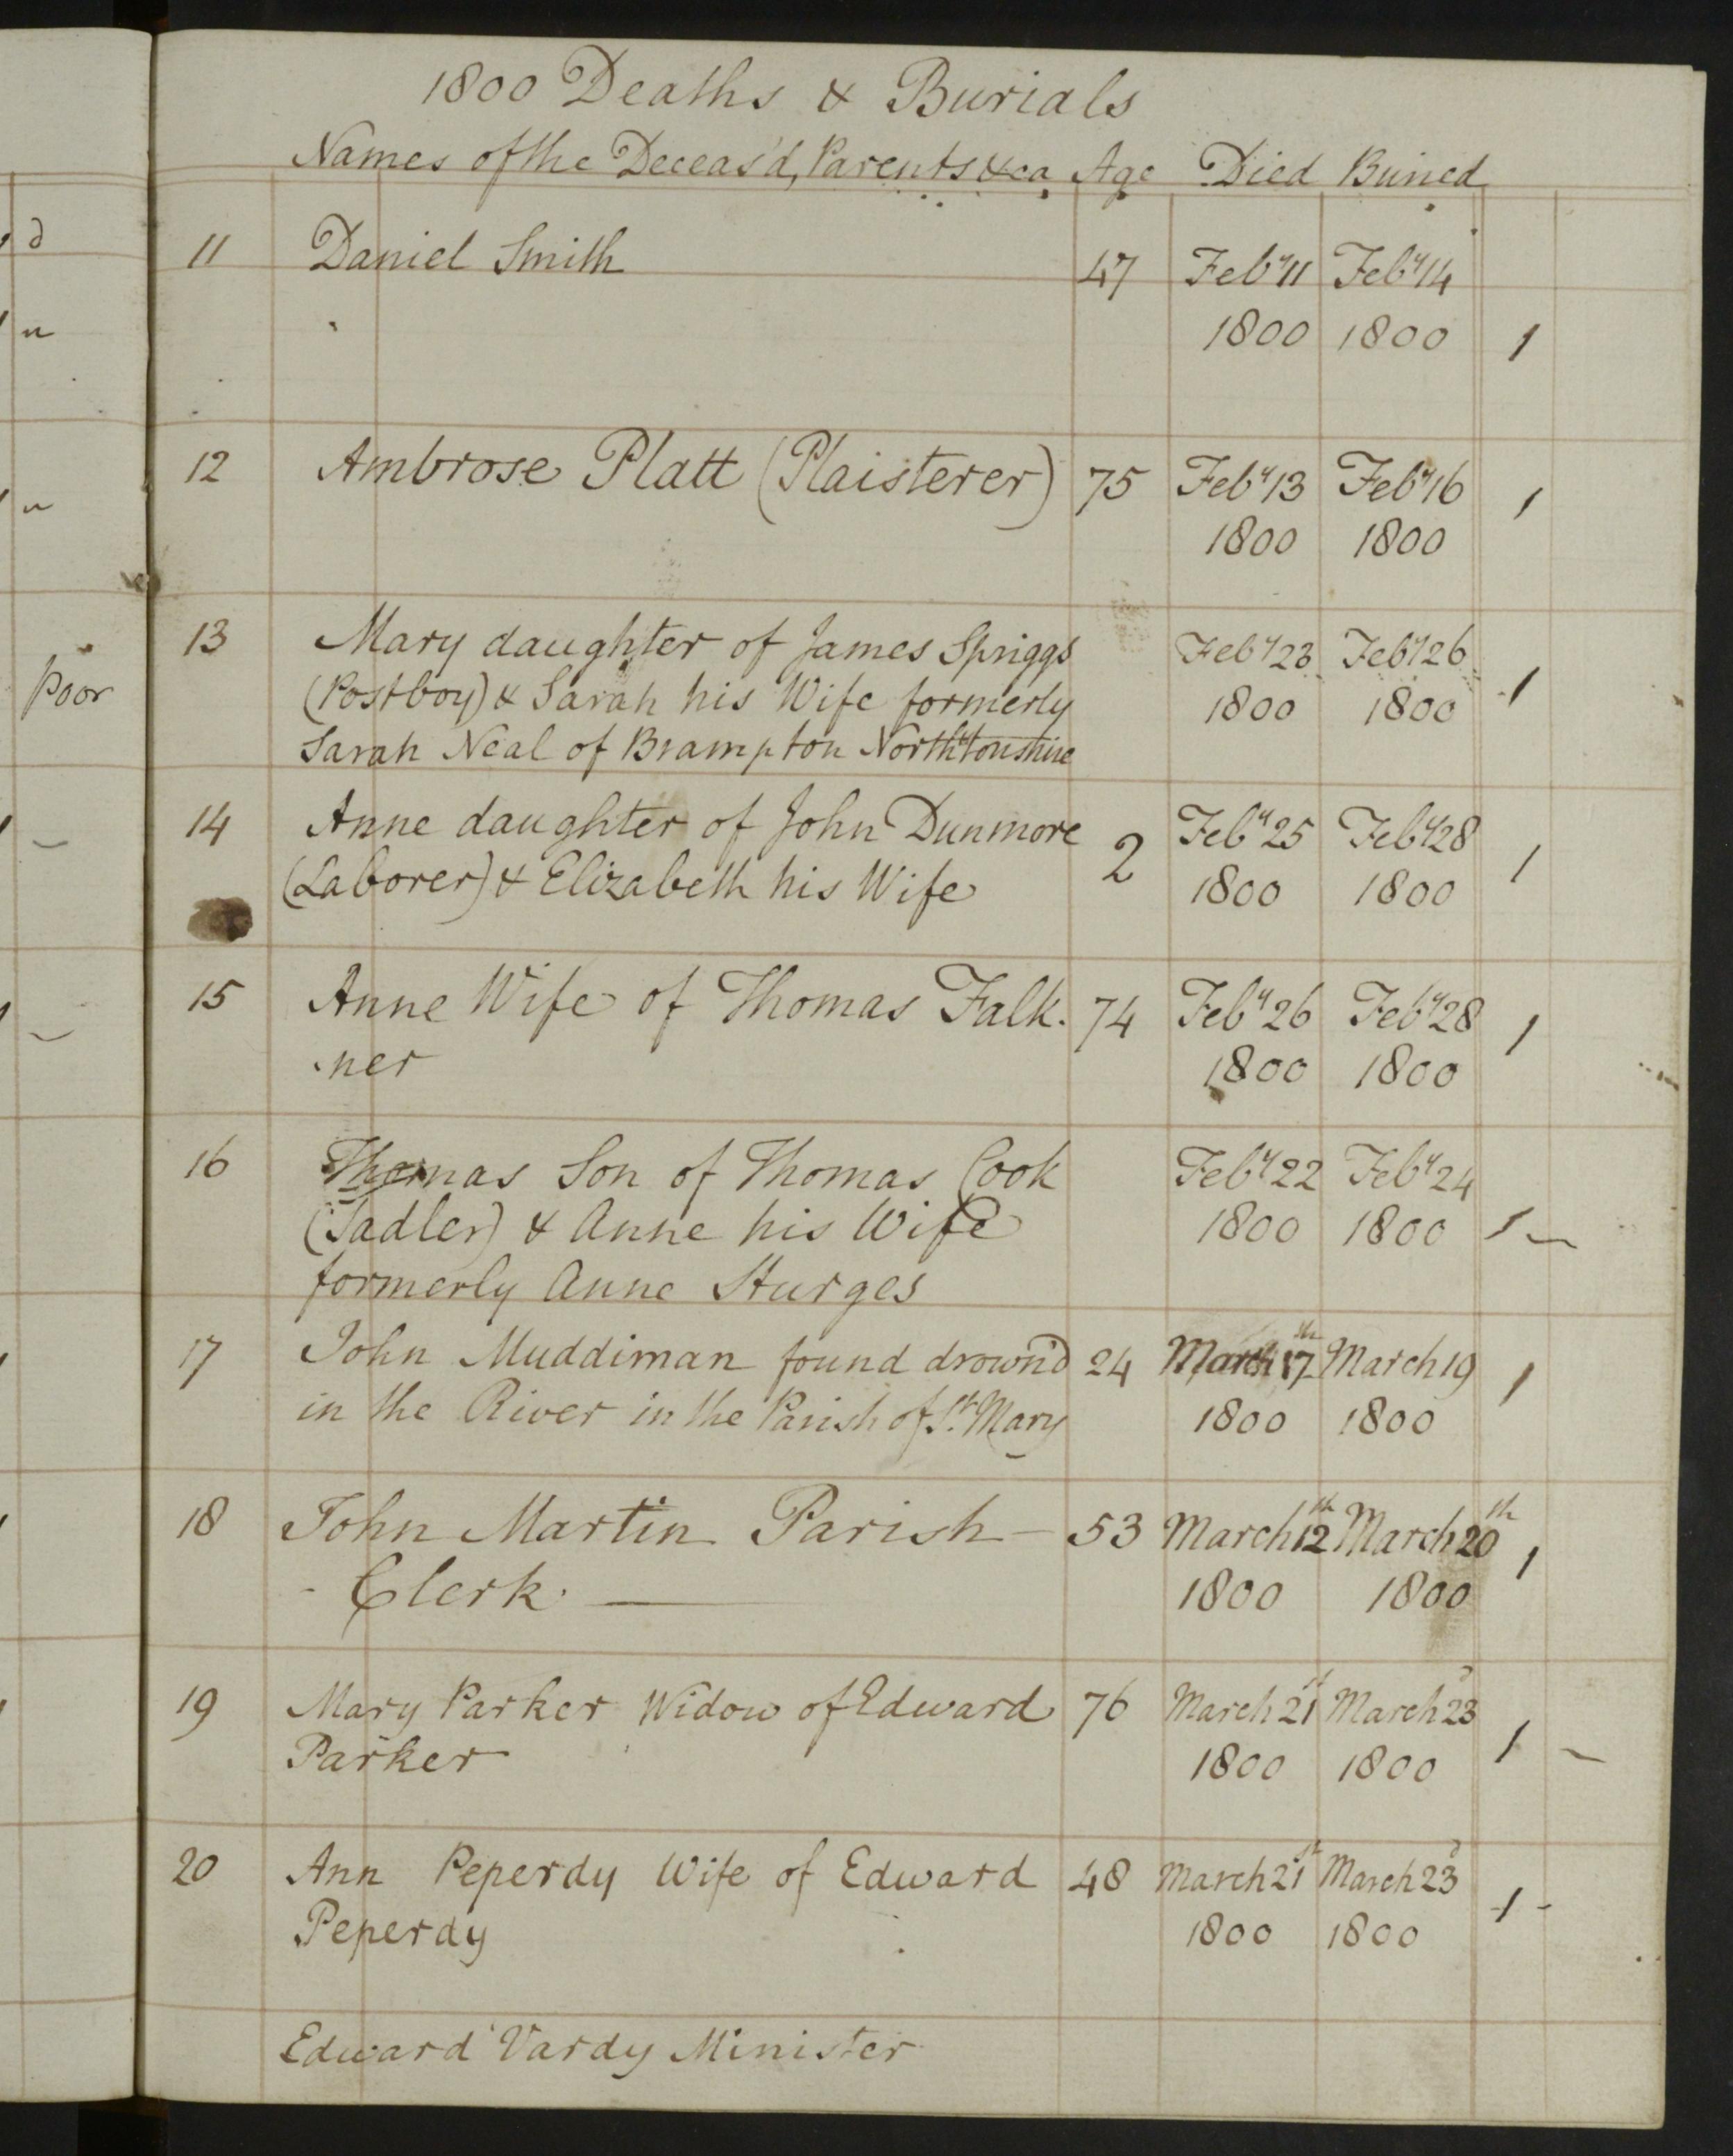 1800 Deaths & Burials
Names of the Deceas'd, Parents &ca Age Died Buried
11 Daniel Smith 47 Feby 11 Feby 14
1800 1800 1
12 Ambrose Platt (Plaisterer) 75 Feby 13 Feby 16 1
1800 1800
13 Mary daughter of James Spriggs Feby 23 Feby 26 1
(Postboy) & Sarah his Wife formerly 1800 1800
Sarah Neal of Brampton Northtonshire
14 Anne daughter of John Dunmore 2 Feby 25 Feby 28 1
(Laborer) & Elizabeth his Wife 1800 1800
15 Anne Wife of Thomas Falk- 74 Feby 26 Feby 28 1
-ner 1800 1800
16 Thomas Son of Thomas Cook Feby 22 Feby 24
(Sadler) & Anne his Wife 1800 1800 1 –
formerly Anne Sturges
17 John Muddiman found drown'd 24 March 17th March 19 1
in the River in the Parish of St. Mary 1800 1800
18 John Martin Parish – 53 March 12th March 20th 1
- Clerk. — 1800 1800
19 Mary Parker Widow of Edward 76 March 21st March 23d
Parker 1800 1800 1 –
20 Ann Peperdy Wife of Edward 48 March 21st March 23d 1 -
Peperdy 1800 1800
Edward Vardy Minister
d
"
"
Poor